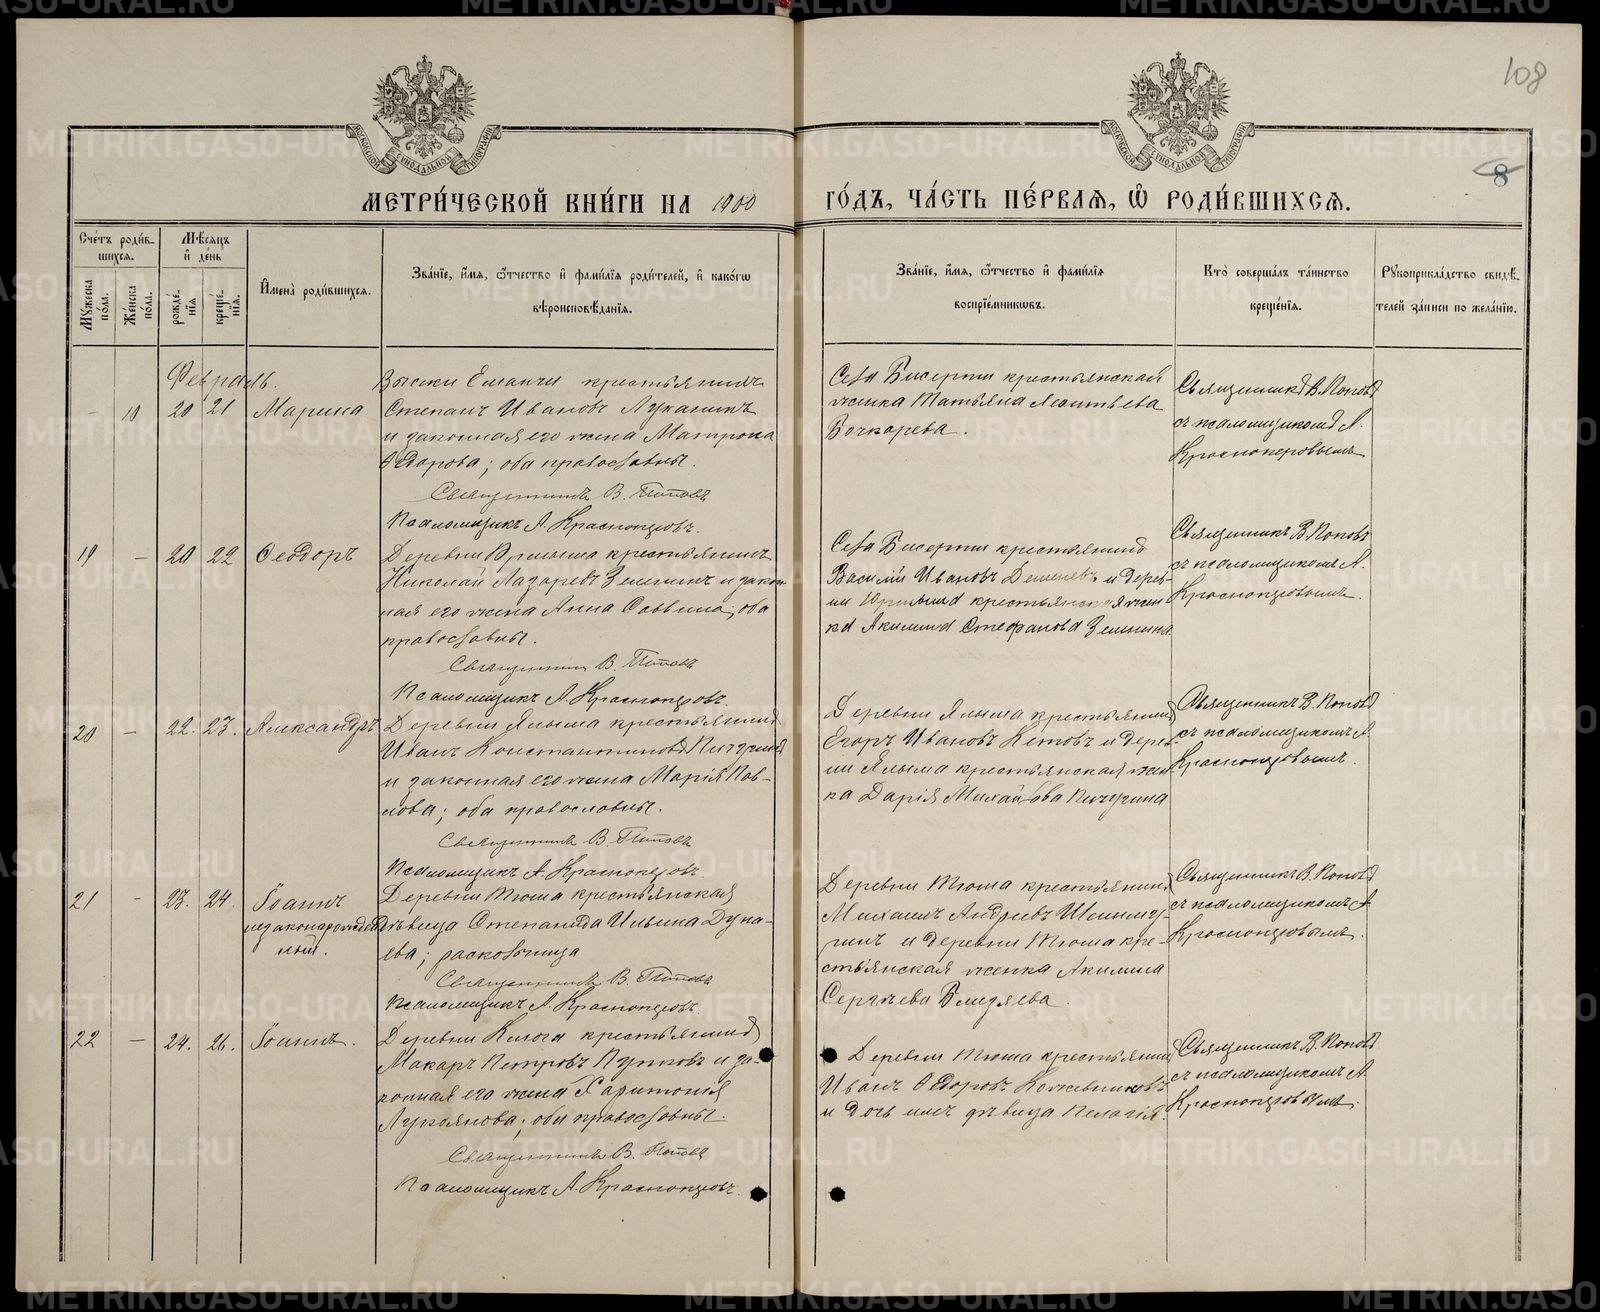 108
8
МЕТРИ́ЧЕСКОЙ КНИ́ГИ НА 1900 ГО́ДЪ, ЧА́СТЬ ПЕ́РВАѦ, Ѡ҆ РОДИ́ВШИХСѦ.
Сче́тъ роди́вшихся.
Мѣ́сяцъ и҆ де́нь
И҆мена̀ роди́вшихся.
Зва́нїе, и҆́мя, ѻ҆́тчество и҆ фами́лїя роди́телей, и҆ како́гѡ вѣроисповѣ́данїя.
Зва́нїе, и҆́мя, ѻ҆́тчество и҆ фами́лїя воспрїе́мниковъ.
Кто̀ соверша́лъ та́инство креще́нїя.
Рꙋкоприкла́дство свидѣ́телей за́писи по жела́нїю.
Мꙋ́жеска по́ла.
Же́нска по́ла.
рожде́нїя
креще́нїя.
Февраль.
– 10 20 21 Марина
крестьянинъ
Степанъ Ивановъ Луканинъ
и законная его жена Матрона
Ѳедорова; оба православны.
Священникъ В. Поповъ
Псаломщикъ А. Красноперовъ.
Села Бисерти крестьянская
женка Татьяна Леонтьева
Бочкарева.
Священникъ В. Поповъ
съ псаломщикомъ А.
Красноперовымъ
19 – 20 22 Ѳеодоръ
Деревни крестьянинъ
Николай Лазаревъ Зенинъ и закон-
ная его жена Анна Саввина; оба
православны.
Священникъ В. Поповъ
Псаломщикъ А. Красноперовъ
Села Бисерти крестьянинъ
Василій Ивановъ и дерев-
ни крестьянская жен-
ка Акилина Стефанова
Священникъ В. Поповъ
съ псаломщикомъ А.
Красноперовымъ.
20 – 22. 23. Александръ
Деревни Ялыма крестьянинъ
Иванъ Константиновъ Пичугинъ
и законная его жена Марія Пав-
лова; оба православны.
Священникъ В. Поповъ
Псаломщикъ А. Красноперовъ
Деревни Ялыма крестьянинъ
Егоръ Ивановъ Кетовъ и дерев-
ни Ялыма крестьянская жен-
ка Дарія Михайлова Пичугина
Священникъ В. Поповъ
съ псаломщикомъ А.
Красноперовымъ.
21 – 23. 24. Іоаннъ
незаконорожден-
ный.
Деревни Тюша крестьянская
дѣвица Степанида Ильина Дуна-
ева; расковница
Священникъ В. Поповъ
Псаломщикъ А. Красноперовъ.
Деревни Тюша крестьянинъ
Михаилъ Андреевъ
и деревни Тюша кре-
стьянская женка Акилина
Сергѣева
Священникъ В. Поповъ
съ псаломщикомъ А.
Красноперовымъ.
22 – 24. 26. Іоаннъ.
Деревни крестьянинъ
Макаръ Петровъ Пупковъ и за-
конная его жена Харитонія
Лукоянова; оба православны.
Священникъ В. Поповъ
Псаломщикъ А. Красноперовъ.
Деревни Тюша крестьянинъ
Иванъ Ѳедоровъ Кожевниковъ
и дочь его дѣвица Пелагія.
Священникъ В. Поповъ
съ псаломщикомъ А.
Красноперовымъ.
METRIKI.GASO-URAL.RU